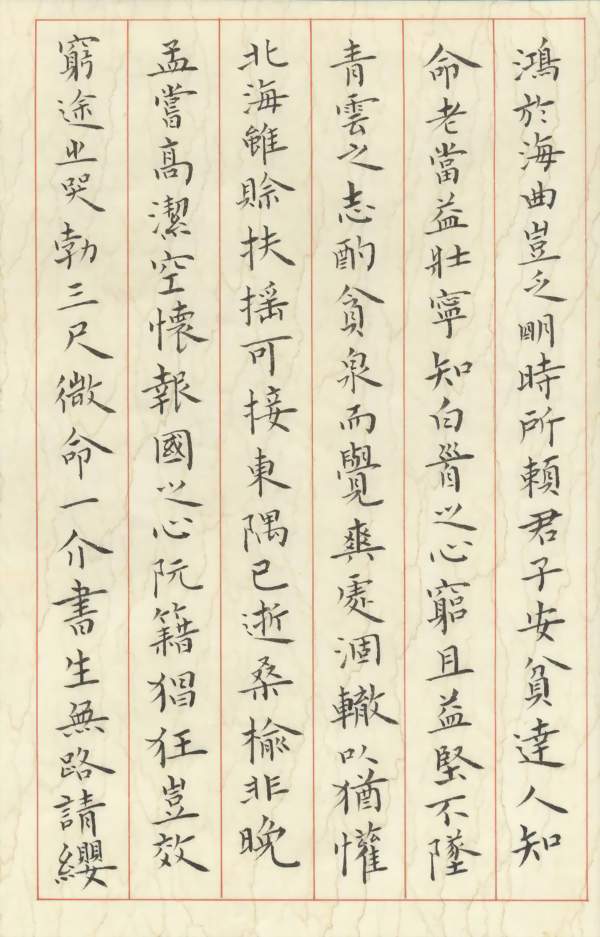 鴻於海曲豈乏明時所賴君子安貧達人知
命老當益壯寧知白首之心窮且益堅不墜
青雲之志酌貪泉而覺爽處涸轍以猶懽
北海雖賒扶搖可接東隅已逝桑榆非晚
孟嘗高潔空懷報國之心阮籍猖狂豈效
窮途之哭勃三尺微命一介書生無路請纓